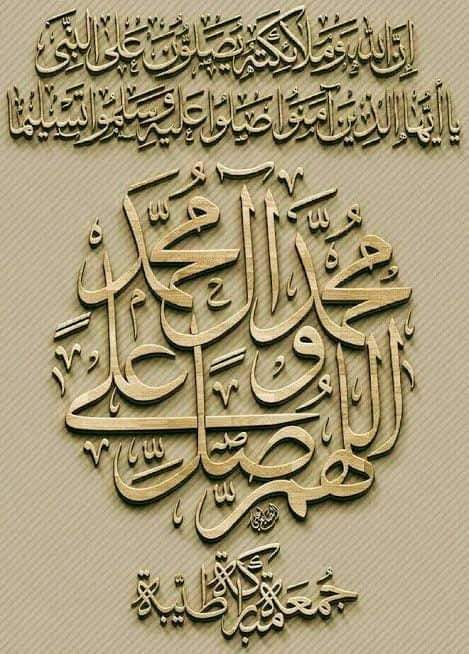 إن الله وملائكته يصلون على النبي
يا أيها الذين آمنوا صلوا عليه وسلموا تسليما
اللهم صل على
محمد وآل محمد
جمعة مباركة طيبة